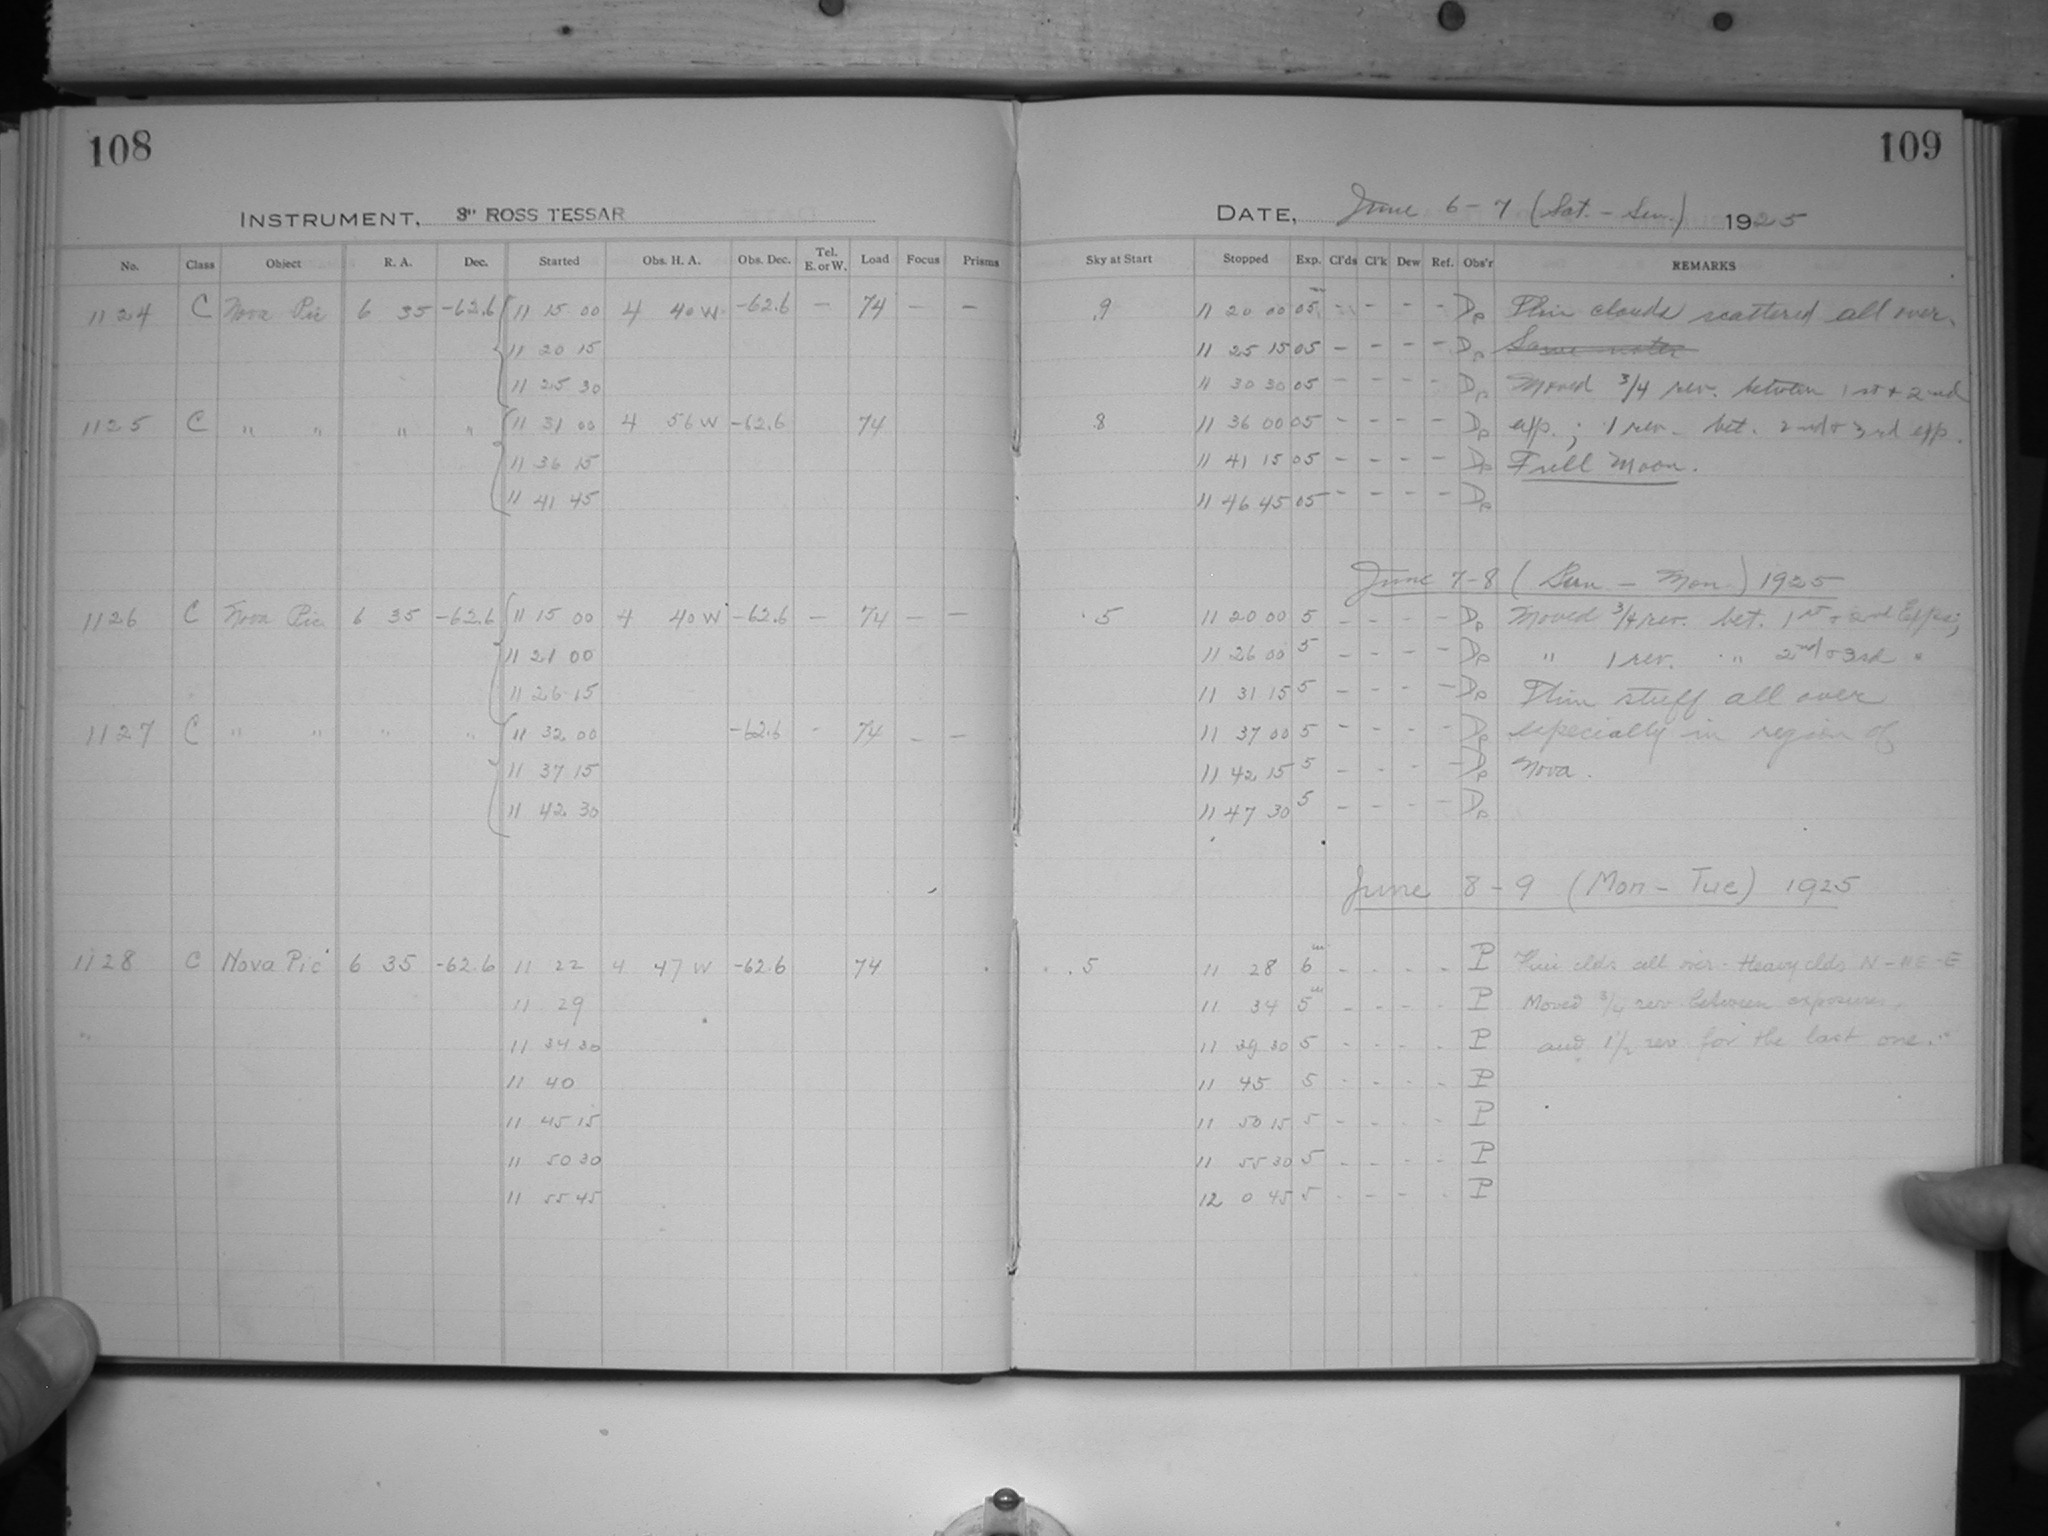 108
109
INSTRUMENT, 3" ROSS TESSAR
DATE, June 6-7 (Sat. - Sun.) 1925
No. Class Object R. A. Dec. Started Obs. H. A. Obs. Dec. Tel. E. or W. Load Focus Prisms Sky at Start Stopped Exp. Cl'ds Cl'k Dew Ref. Obs'r REMARKS
1124 C Nova Pic 6 35 -62.6 11 15 00 4 40 W -62.6 — 74 — — .9 11 20 00 05 m - - - - Dp Thin clouds scattered all over.
11 20 15 11 25 15 05 - - - - Dp Same notes
11 25 30 11 30 30 05 - - - - Dp Moved 3/4 rev. between 1st + 2nd
1125 C " " " " 11 31 00 4 56 W -62.6 74 .8 11 36 00 05 - - - - Dp exp. ; 1 rev. bet. 2nd + 3rd exp.
11 36 15 11 41 15 05 - - - - Dp Full Moon.
11 41 45 11 46 45 05 - - - - Dp
June 7-8 (Sun - Mon.) 1925
1126 C Nova Pic. 6 35 -62.6 11 15 00 4 40 W -62.6 — 74 — — .5 11 20 00 5 - - - - Dp Moved 3/4 rev. bet. 1st + 2nd Exps;
11 21 00 11 26 00 5 - - - - Dp " 1 rev. " 2nd + 3rd "
11 26 15 11 31 15 5 - - - - Dp Thin stuff all over
1127 C " " " " 11 32 00 -62.6 - 74 - — 11 37 00 5 - - - - Dp especially in region of
11 37 15 11 42 15 5 - - - - Dp Nova.
11 42 30 11 47 30 5 - - - - Dp
June 8-9 (Mon - Tue) 1925
1128 C Nova Pic 6 35 -62.6 11 22 4 47 W -62.6 74 .5 11 28 6 m - - - - P Thin clds all over - Heavy clds N-NE-E
11 29 11 34 5 m - - - - P Moved 3/4 rev between exposures,
" 11 34 30 11 39 30 5 - - - - P and 1 1/2 rev for the last one.
11 40 11 45 5 - - - - P
11 45 15 11 50 15 5 - - - - P
11 50 30 11 55 30 5 - - - - P
11 55 45 12 0 45 5 - - - - P